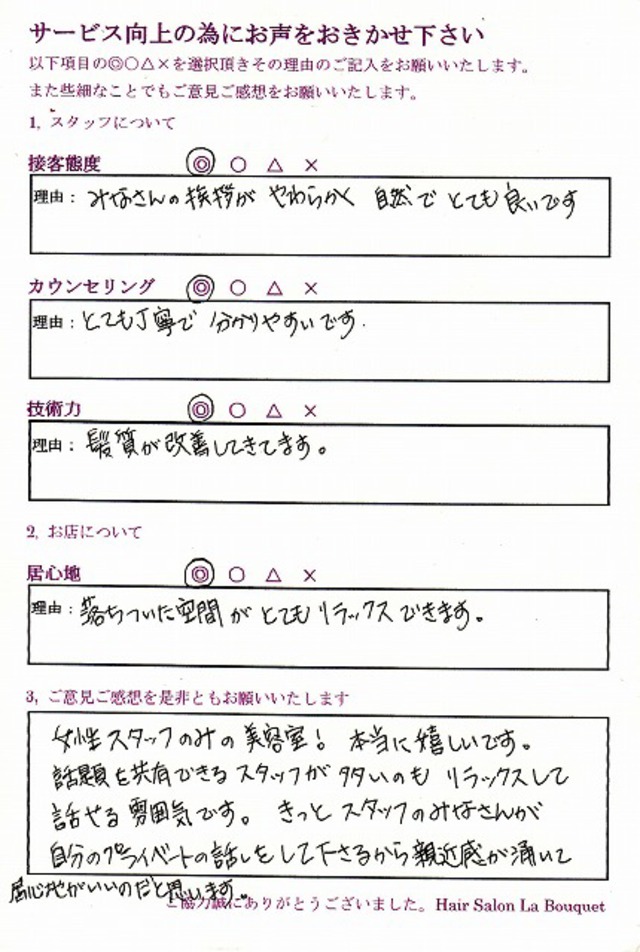 サービス向上の為にお声をおきかせ下さい
以下項目の◎○△×を選択頂きその理由のご記入をお願いいたします。
また些細なことでもご意見ご感想をお願いいたします。
1, スタッフについて
接客態度 ◎ ○ △ ×
理由： みなさんの挨拶が やわらかく 自然で とても 良いです
カウンセリング ◎ ○ △ ×
理由： とても丁寧で 分かりやすいです.
技術力 ◎ ○ △ ×
理由： 髪質が改善してきてます。
2, お店について
居心地 ◎ ○ △ ×
理由： 落ちついた空間が とても リラックス できます。
3, ご意見ご感想を是非ともお願いいたします
女性スタッフのみの美容室! 本当に嬉しいです。
話題を共有できるスタッフが多いのも リラックスして
話せる雰囲気です。 きっと スタッフのみなさんが
自分のプライベートの話しをして下さるから親近感が涌いて
居心地がいいのだと思います。
ご協力誠にありがとうございました。Hair Salon La Bouquet